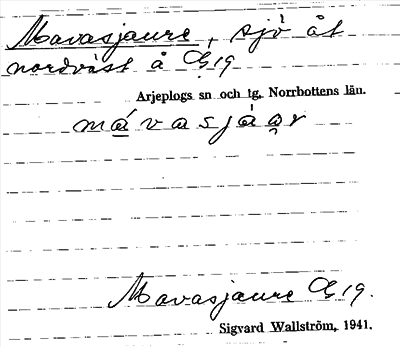 Mavasjaure, sjö åt
nordväst å G 19
Arjeplogs sn och tg, Norrbottens län.
mávasjáo̯r
Mavasjaure G 19.
Sigvard Wallström, 1941.